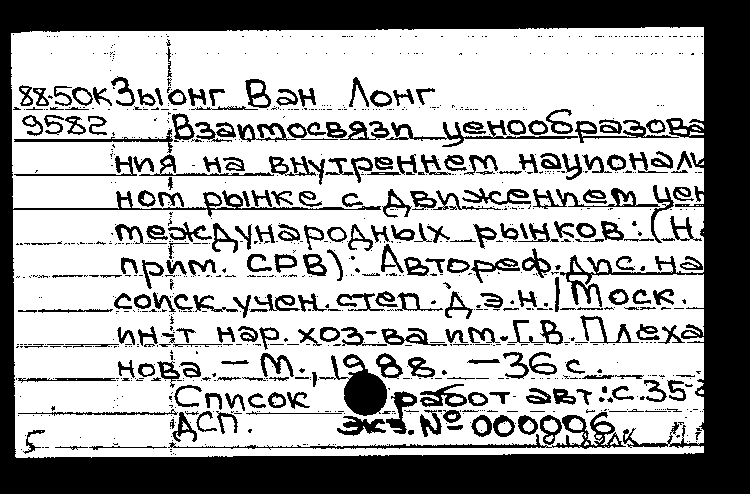 88-50К Зыонг Ван Лонг
9582 Взаимосвязи ценообразова
ния на внутреннем националь
ном рынке с движением цен
международных рынков: (На
прим. СРВ): Автореф. дис. на
соиск. учен. степ. д.э.н. / Моск.
ин-т нар. хоз-ва им. Г.В. Плеха
нова. — М., 1988. — 36 с.
Список работ авт.: с. 35-
ДСП. экз. № 000006
5